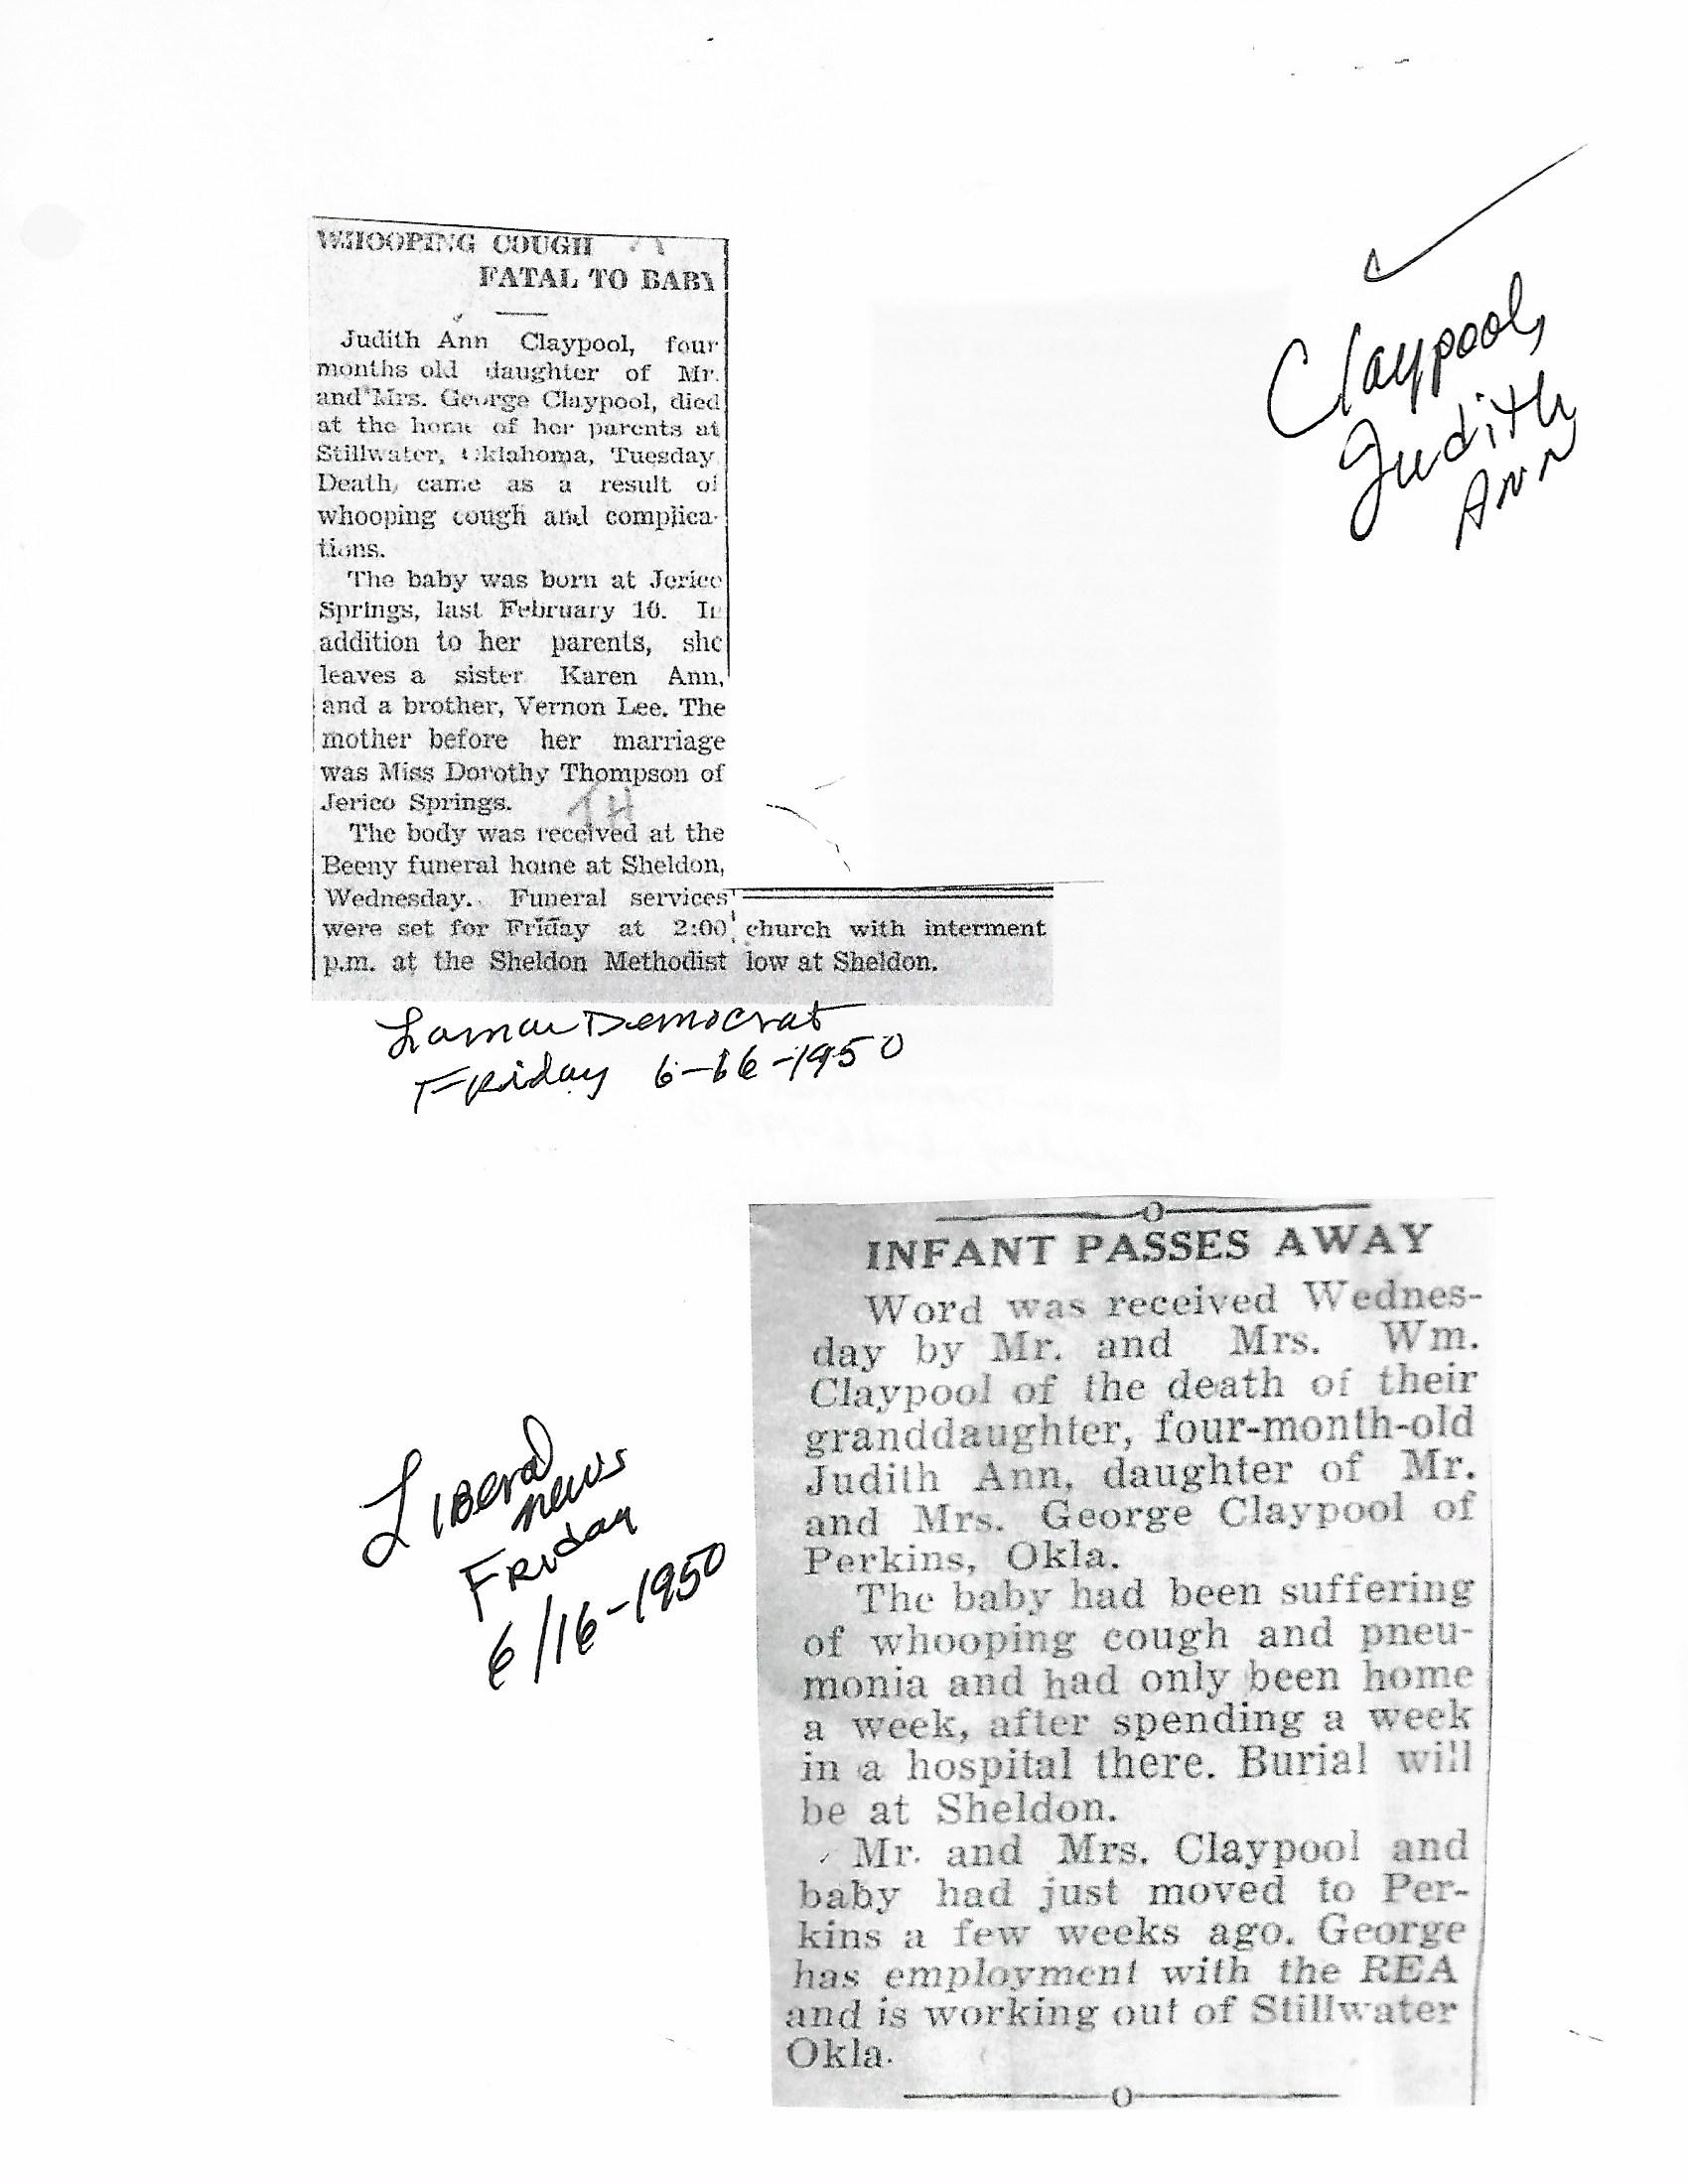 WHOOPING COUGH
FATAL TO BABY
Judith Ann Claypool, four
months old daughter of Mr.
and Mrs. George Claypool, died
at the home of her parents at
Stillwater, Oklahoma, Tuesday
Death came as a result of
whooping cough and complica-
tions.
The baby was born at Jerico
Springs, last February 10. In
addition to her parents, she
leaves a sister Karen Ann,
and a brother, Vernon Lee. The
mother before her marriage
was Miss Dorothy Thompson of
Jerico Springs.
TH
The body was received at the
Beeny funeral home at Sheldon,
Wednesday. Funeral services
were set for Friday at 2:00
p.m. at the Sheldon Methodist
church with interment
low at Sheldon.
Lamar Democrat
Friday 6-16-1950
Claypool,
Judith
Ann
Liberal
news
Friday
6/16-1950
INFANT PASSES AWAY
Word was received Wednes-
day by Mr. and Mrs. Wm.
Claypool of the death of their
granddaughter, four-month-old
Judith Ann, daughter of Mr.
and Mrs. George Claypool of
Perkins, Okla.
The baby had been suffering
of whooping cough and pneu-
monia and had only been home
a week, after spending a week
in a hospital there. Burial will
be at Sheldon.
Mr. and Mrs. Claypool and
baby had just moved to Per-
kins a few weeks ago. George
has employment with the REA
and is working out of Stillwater
Okla.